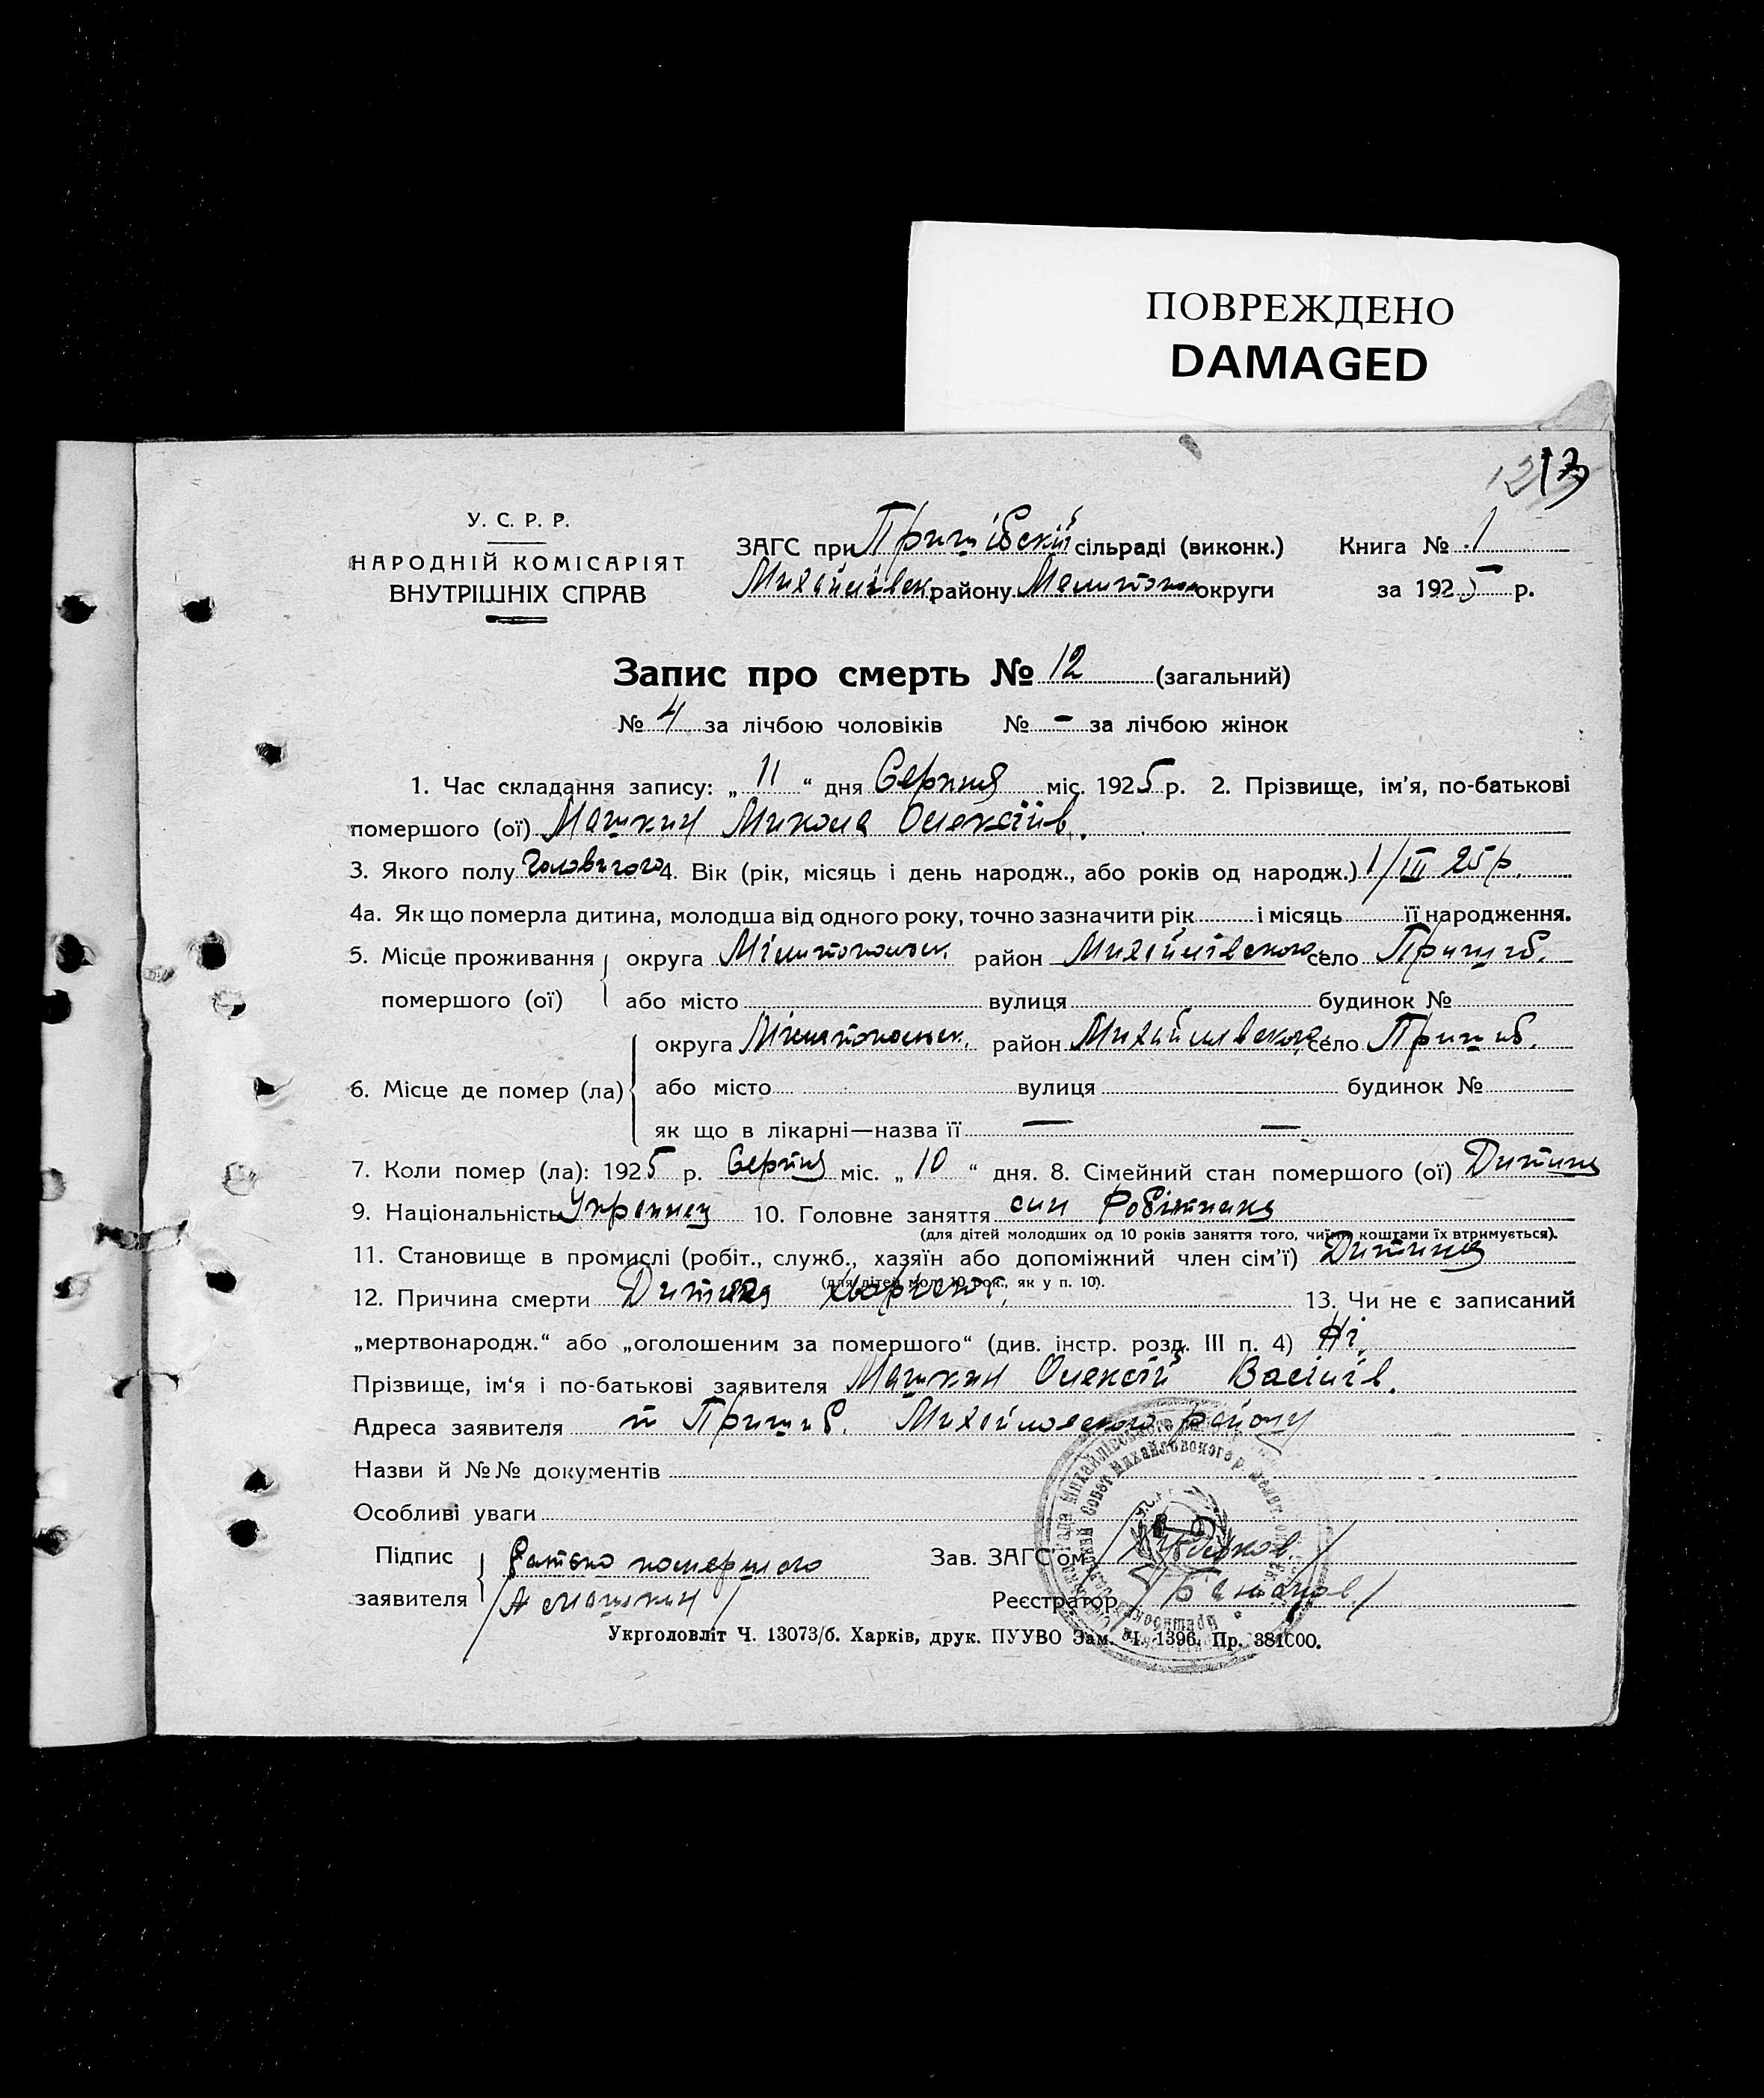 ПОВРЕЖДЕНО
DAMAGED
У. С. Р. Р.
НАРОДНІЙ КОМІСАРІЯТ
ВНУТРІШНІХ СПРАВ
ЗАГС при Пришібскій сільраді (виконк.) Книга № 1
Михайлівск. району Мелитопол округи за 1925 р.
Запис про смерть № 12 (загальний)
№ 4 за лічбою чоловіків № – за лічбою жінок
1. Час складання запису: „ 11 “ дня Серпня міс. 1925 р. 2. Прізвище, ім'я, по-батькові
помершого (ої) Машкин Микола Олексіїв.
3. Якого полу Чоловічого 4. Вік (рік, місяць і день народж., або років од народж.) 1/III 25 р.
4а. Як що померла дитина, молодша від одного року, точно зазначити рік і місяць її народження.
5. Місце проживання округа Мілитопольск. район Михайлівского село Пришиб.
помершого (ої) або місто вулиця будинок №
округа Мілитопольск. район Михайлівского село Пришиб.
6. Місце де помер (ла) або місто вулиця будинок №
як що в лікарні—назва її — —
7. Коли помер (ла): 1925 р. Серпня міс. „ 10 “ дня. 8. Сімейний стан помершого (ої) Дитина
9. Національність Украинец 10. Головне заняття син Робітника
(для дітей молодших од 10 років заняття того, чиїми коштами їх втримується).
11. Становище в промислі (робіт., служб., хазяїн або допоміжний член сім'ї) Дитина
(для дітей мол. 10 рок., як у п. 10).
12. Причина смерти Дитяча хворість. 13. Чи не є записаний
„мертвонародж.“ або „оголошеним за помершого“ (див. інстр. розд. III п. 4) Ні.
Прізвище, ім'я і по-батькові заявителя Машкин Олексій Васілів.
Адреса заявителя Пришиб. Михайловского району
Назви й №№ документів
Особливі уваги
Підпис Батько помершого Зав. ЗАГС'ом
заявителя /А Машкин/ Реєстратор
Укрголовліт Ч. 13073/б. Харків, друк. ПУУВО Зам. Ч. 1396. Пр. 381000.